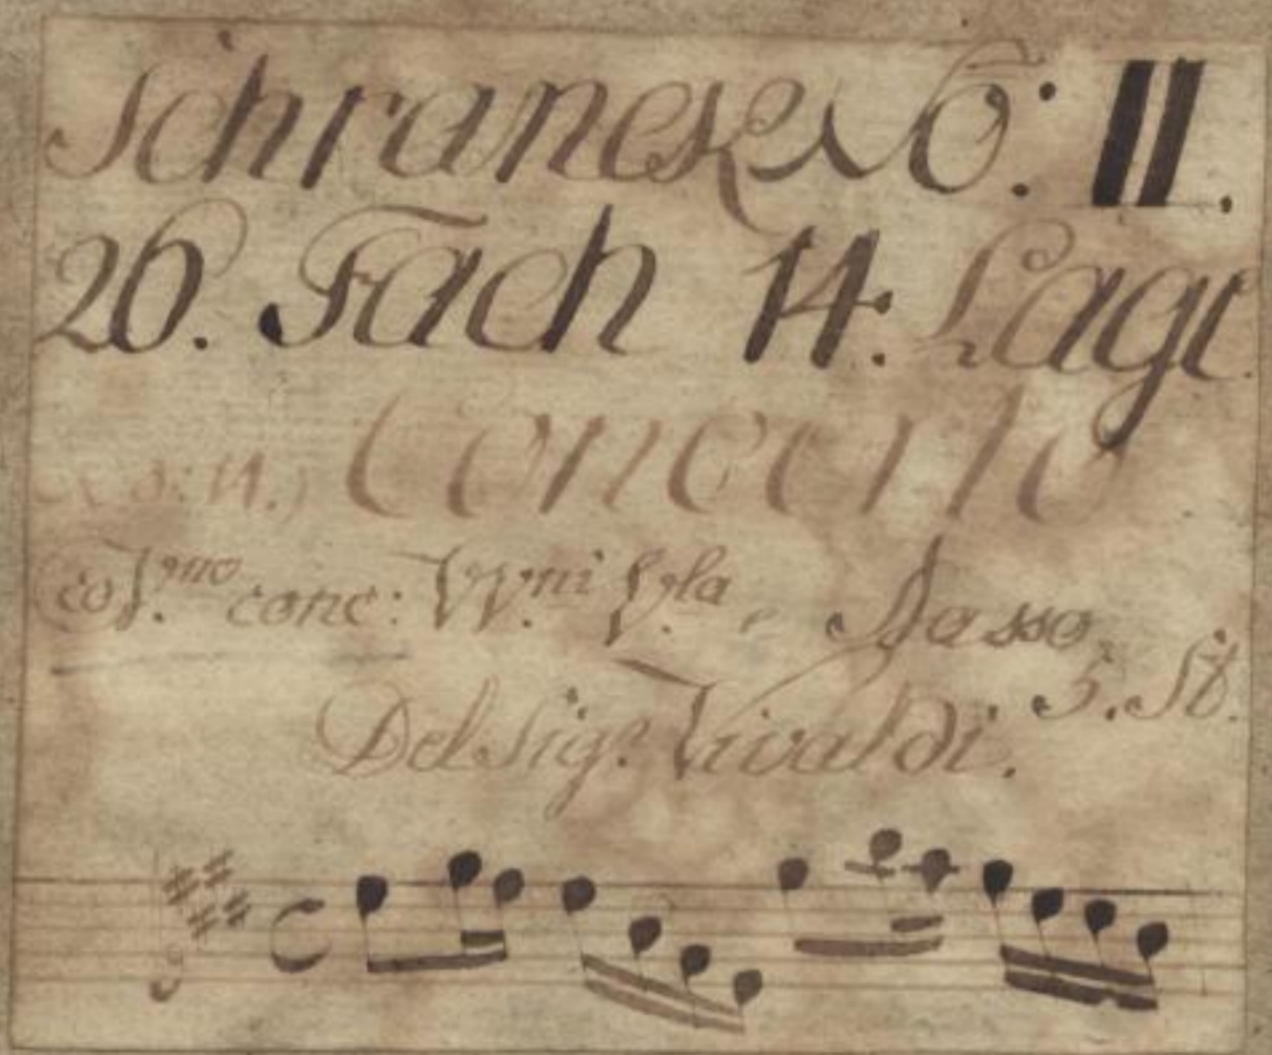 Schranck No: II.
26. Fach 14. Lage.
(No: 11.) Concerto
co V.mo conc: VV.ni V.la e Basso.
5. St.
Del Sig.r Vivaldi.